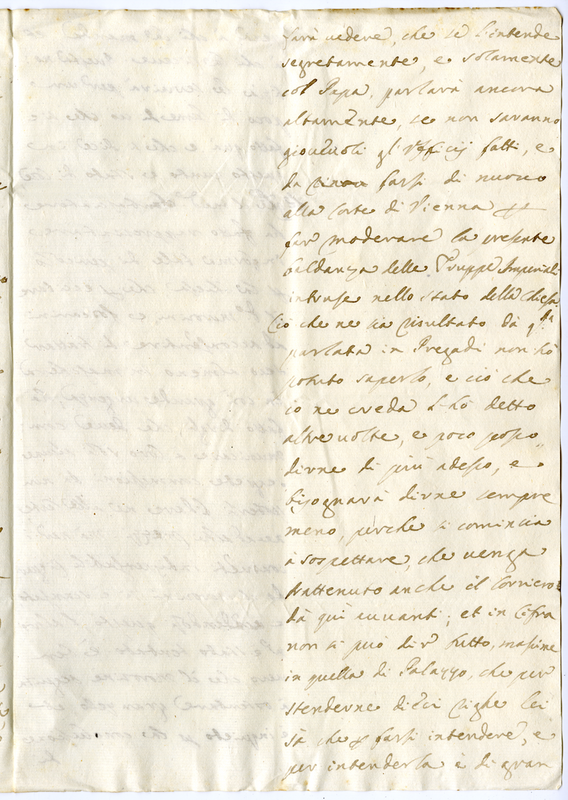 farà vedere, che se l'intende
segretamente, e solamente
col Papa, parlarà ancora
altamente, se non saranno
gioueuoli gl'Vfficij fatti, e
da farsi di nuouo
alla Corte di Vienna p
far moderare la presente
baldanza delle Truppe Imperiali
intruse nello stato della Chiesa
Ciò che ne sia risultato da q.sta
parlata in Pregadi non hò
potuto saperlo, e ciò che
io ne creda l'hò detto
altre uolte, e poco posso
dirne di più adesso, e
bisognarà dirne sempre
meno, perche si comincia
à sospettare, che uenga
trattenuto anche il Corriero
da quì auuanti; et in Cifra
non si può dir tutto, massime
in quella di Palazzo, che per
stenderne dieci righe lei
sà che p farsi intendere, e
per intenderla è di gran